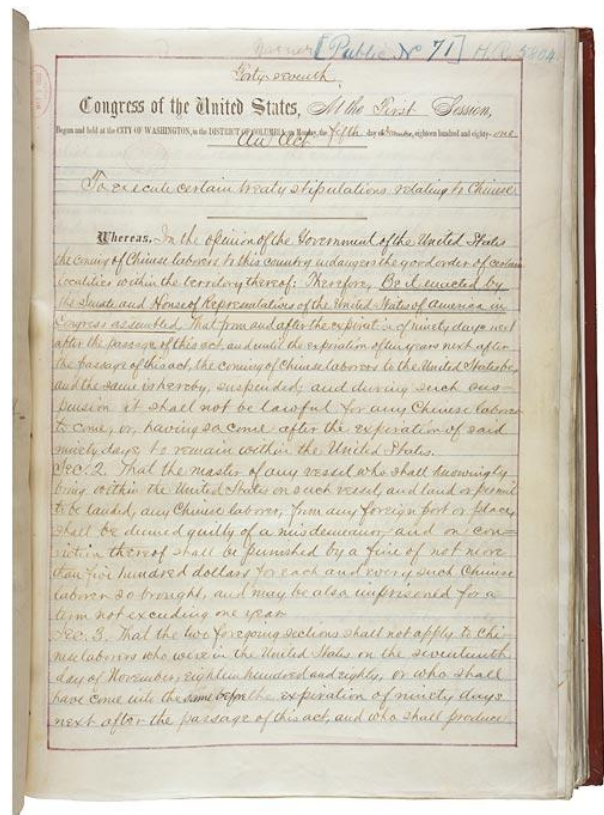 [Public No 71] H.R. 5804
Forty-seventh
Congress of the United States, At the First Session,
Begun and held at the CITY OF WASHINGTON, in the DISTRICT OF COLUMBIA, on Monday, the fifth day of December, eighteen hundred and eighty-one
An Act
To execute certain treaty stipulations relating to Chinese
Whereas, In the opinion of the Government of the United States
the coming of Chinese laborers to this country endangers the good order of certain
localities within the territory thereof: Therefore, Be it enacted by
the Senate and House of Representatives of the United States of America in
Congress assembled, That from and after the expiration of ninety days next
after the passage of this act, and until the expiration of ten years next after
the passage of this act, the coming of Chinese laborers to the United States be,
and the same is hereby, suspended; and during such sus=
pension it shall not be lawful for any Chinese laborer
to come, or, having so come after the expiration of said
ninety days, to remain within the United States.
Sec. 2. That the master of any vessel who shall knowingly
bring within the United States on such vessel, and land or permit
to be landed, any Chinese laborer, from any foreign port or place,
shall be deemed guilty of a misdemeanor, and on con=
viction thereof shall be punished by a fine of not more
than five hundred dollars for each and every such Chinese
laborer so brought, and may be also imprisoned for a
term not exceeding one year.
Sec. 3. That the two foregoing sections shall not apply to Chi-
nese laborers who were in the United States on the seventeenth
day of November, eighteen hundred and eighty, or who shall
have come into the same before the expiration of ninety days
next after the passage of this act, and who shall produce